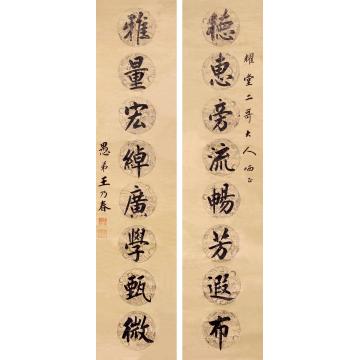 德惠旁流暢芳遐布
耀堂二哥大人哂正
雅量宏綽廣學甄微
愚弟王乃春